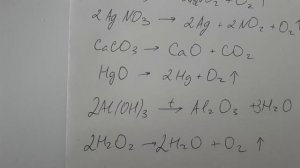 2AgNO₃ → 2Ag + 2NO₂ + O₂↑
CaCO₃ → CaO + CO₂
HgO → 2Hg + O₂↑
2Al(OH)₃ →t Al₂O₃ + 3H₂O
2H₂O₂ → 2H₂O + O₂ ↑